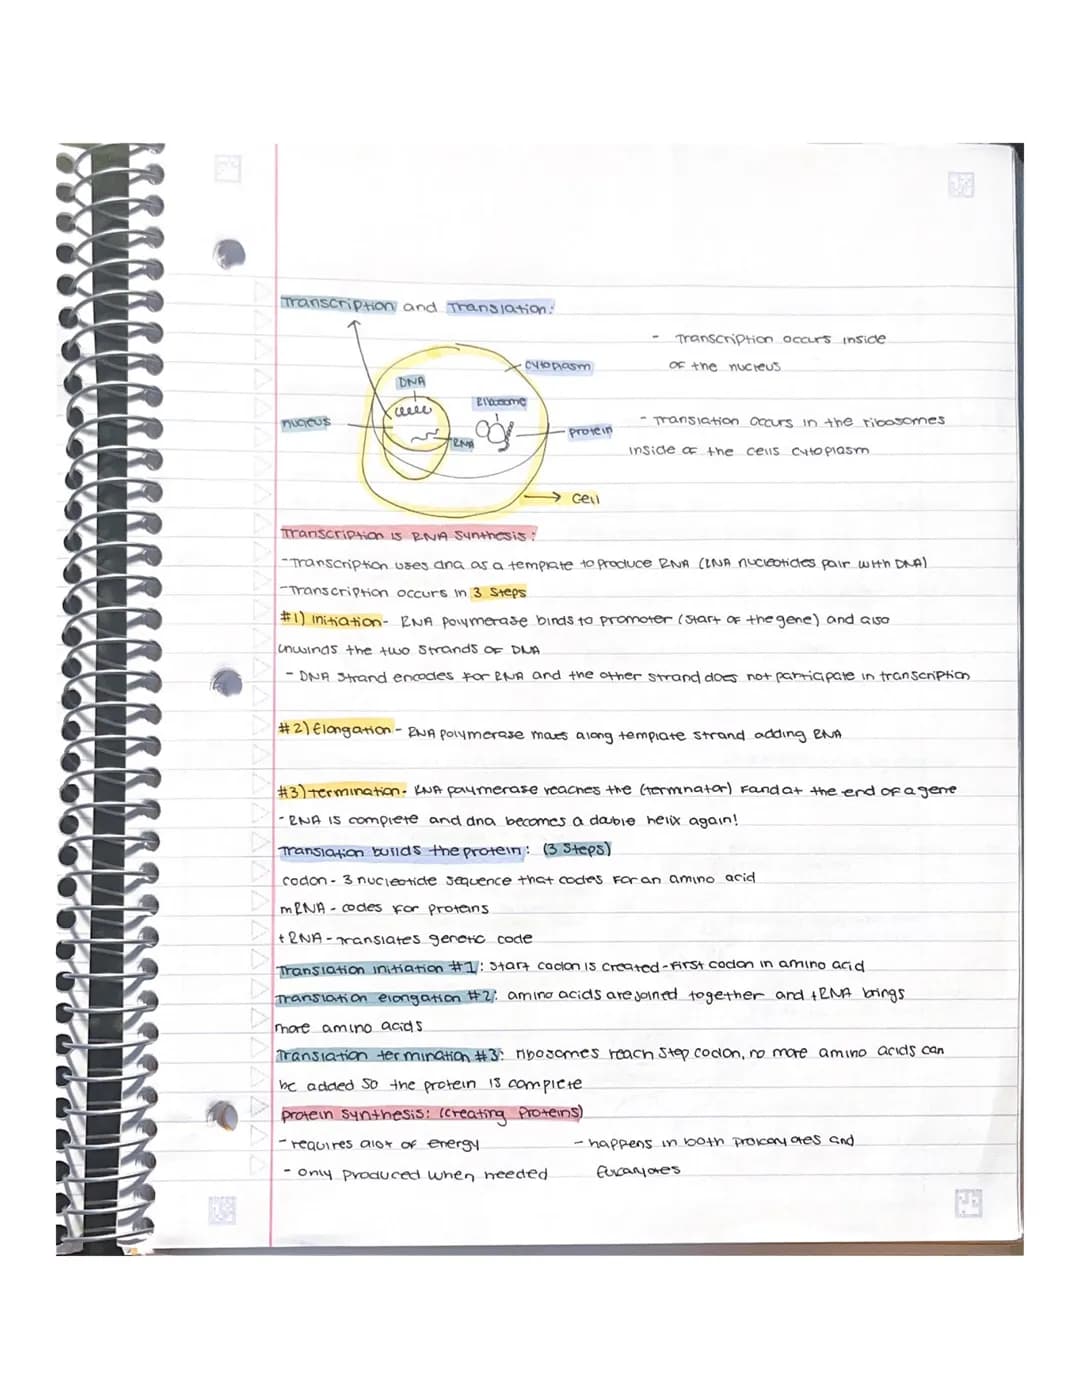 Transcription and Translation:
- Transcription occurs inside
of the nucleus
cytoplasm
DNA
Ribosome
nucleus
RNA
protein
- Translation occurs in the ribosomes
inside of the cells cytoplasm
cell
Transcription is RNA Synthesis:
- Transcription uses dna as a template to produce RNA (RNA nucleotides pair with DNA)
- Transcription occurs in 3 Steps
#1) Initiation - RNA polymerase binds to promoter (start of the gene) and also
unwinds the two strands of DNA
- DNA strand encodes for RNA and the other strand does not participate in transcription
#2) Elongation - RNA polymerase moves along template strand adding RNA
#3) termination - RNA polymerase reaches the (terminator) found at the end of a gene
- RNA is complete and dna becomes a double helix again!
Translation builds the protein: (3 Steps)
codon - 3 nucleotide sequence that codes for an amino acid
mRNA - codes for proteins
tRNA - Translates genetic code
Translation initiation #1: Start codon is created - First codon in amino acid
Translation elongation #2: amino acids are joined together and tRNA brings
more amino acids
Translation termination #3: ribosomes reach stop codon, no more amino acids can
be added so the protein is complete
protein synthesis: (creating proteins)
- requires alot of energy
- happens in both prokaryotes and
- only produced when needed
Eukaryotes